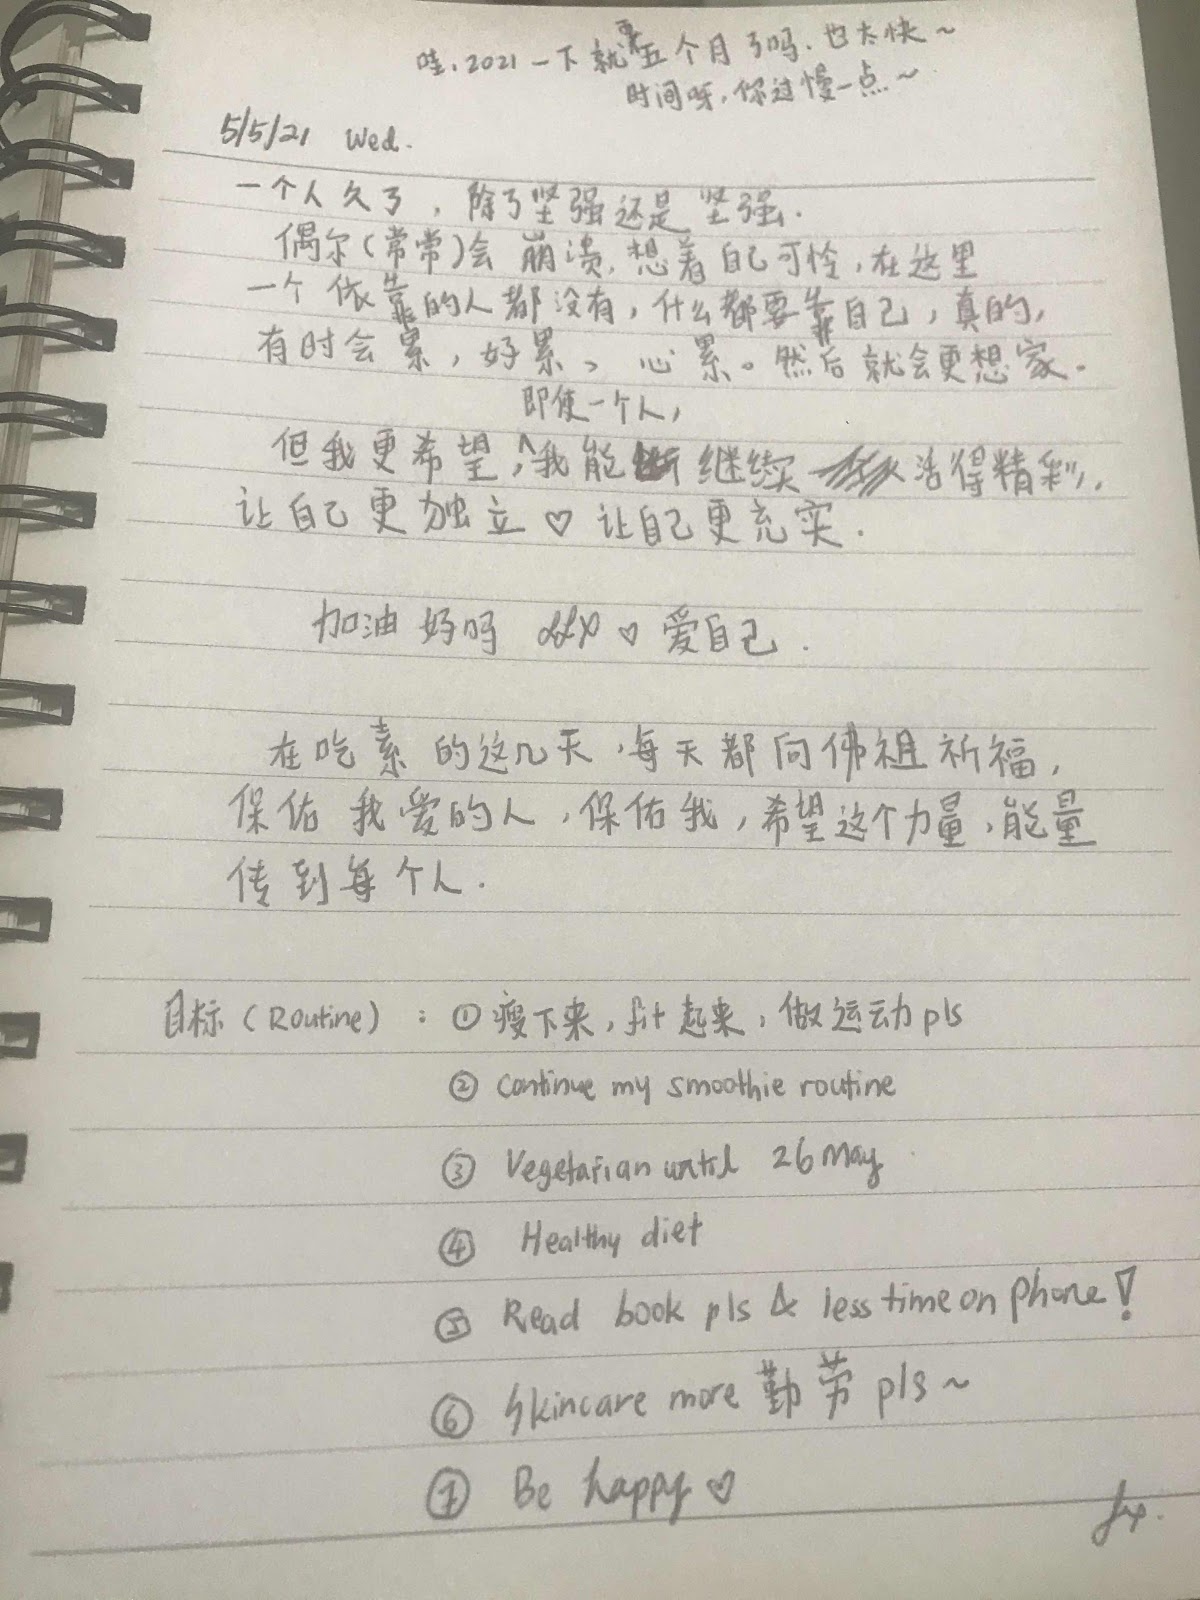 哇，2021一下就来五个月了吗，也太快~
时间呀，你过慢一点~
5/5/21 Wed.
一个人久了，除了坚强还是坚强.
偶尔(常常)会崩溃，想着自己可怜，在这里
一个依靠的人都没有，什么都要靠自己，真的，
有时会累，好累、心累。然后就会更想家.
即使一个人，
但我更希望，^我能继续活得精彩.
让自己更独立♡让自己更充实.
加油好吗 ♡ 爱自己.
在吃素的这几天，每天都向佛祖祈福，
保佑我爱的人，保佑我，希望这个力量，能量
传到每个人.
目标(Routine)：①瘦下来，fit起来，做运动pls
② continue my smoothie routine
③ Vegetarian until 26 May
④ Healthy diet
⑤ Read book pls & less time on phone!
⑥ Skincare more 勤劳 pls~
⑦ Be happy♡